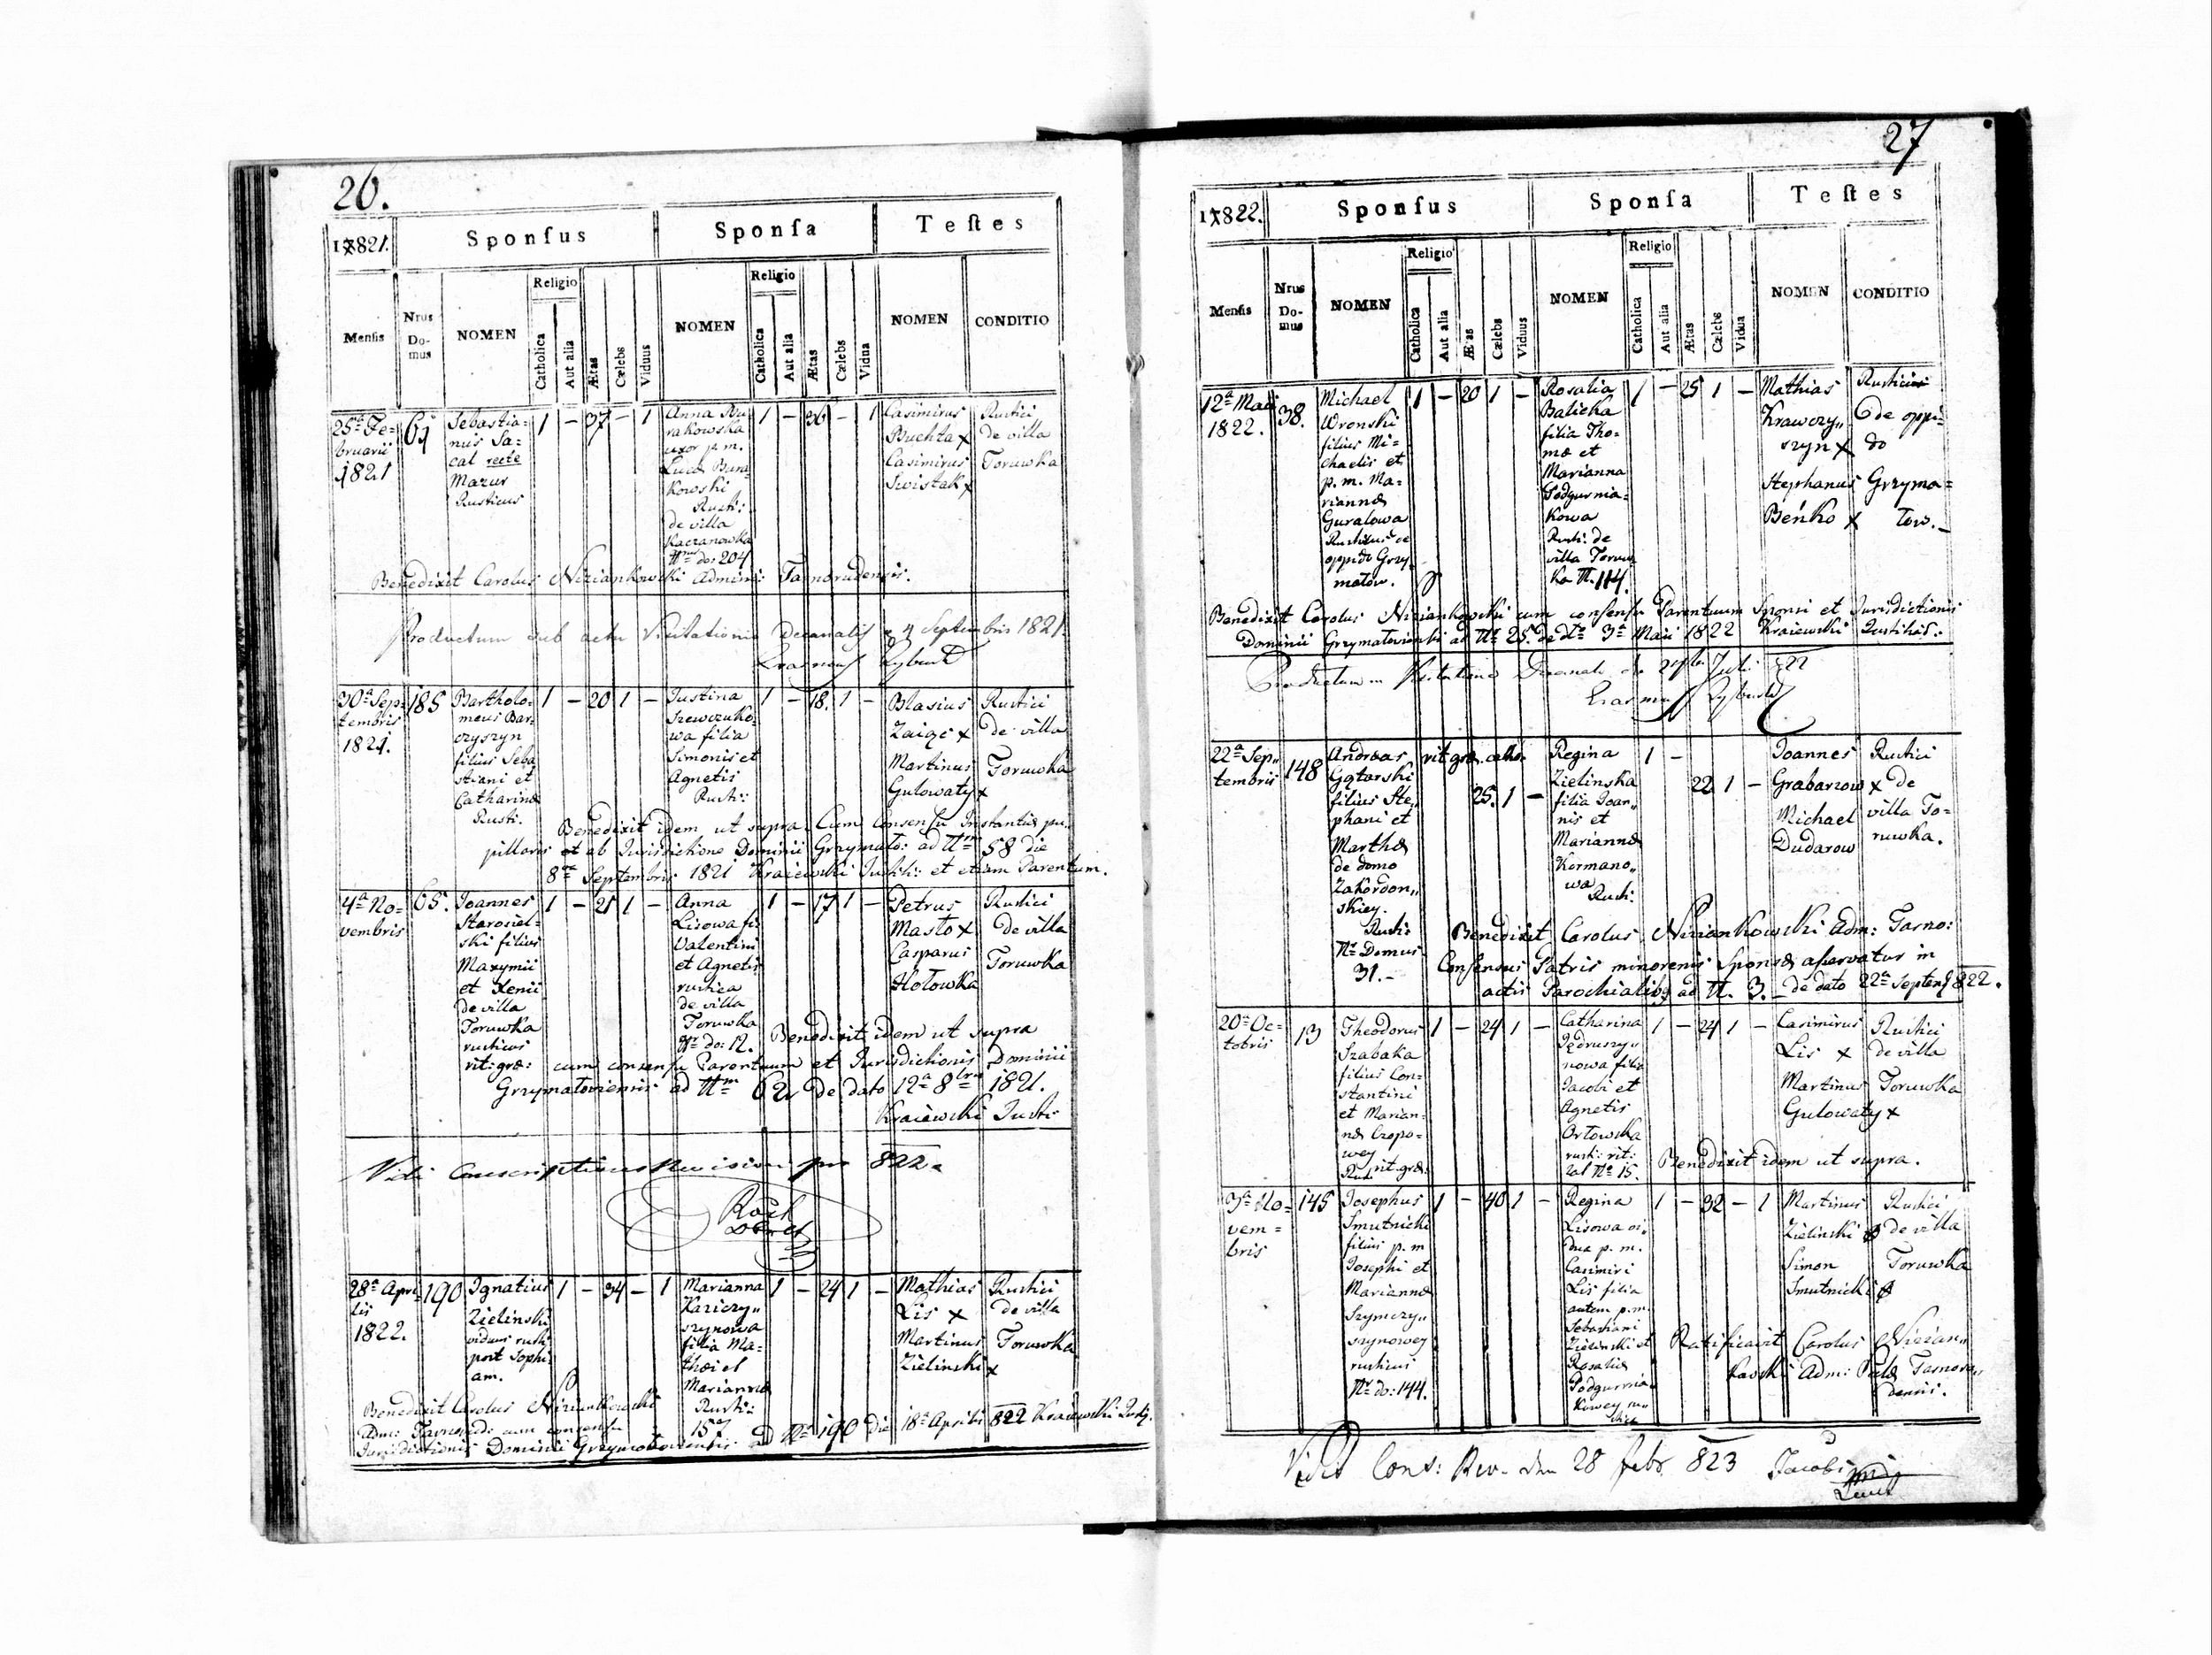 26.
1821.
Sponsus
Sponsa
Testes
Mensis
Nrus Do-mus
NOMEN
Religio
Catholica
Aut alia
Ætas
Cælebs
Viduus
NOMEN
Religio
Catholica
Aut alia
Ætas
Cælebs
Vidua
NOMEN
CONDITIO
25ta Fe=
bruarii
1821
61
Sebastia=
nus Sa=
cal recte
Mazur
Rusticus
1 – 37 – 1
Anna Bu
rakowska
uxor p. m.
Lucæ Bura=
kowski
Rusti:
de villa
Kaczanowka
Nrus do: 204
1 – 36 – 1
Casimirus
Buchta x
Casimirus
Swistak x
Rustici
de villa
Toruwka
Benedixit Carolus Nizankowski Admini: Tarnorudensis.
Productum sub actu Visitationis Decanalis 4 Septembris 1821
30a Sep=
tembris
1821.
185
Bartholo=
meus Bar=
czyszyn
filius Seba
stiani et
Catharinæ
Rusti.
1 – 20 1 –
Justina
Szewczuko=
wa filia
Simonis et
Agnetis
Rusti:
1 – 18. 1 –
Blasius
Zaigc x
Martinus
Gulowaty x
Rustici
de villa
Toruwka
Benedixit idem ut supra. Cum consensu Instantiæ pu=
pillaris et ab Jurisdictione Dominii Grzymało: ad Nrm 58 die
8va Septembris 1821 Kraiewski Justit: et etiam Parentum.
4a No=
vembris
65.
Joannes
Starosiel=
ski filius
Maxymii
et Xenii
de villa
Toruwka
rusticus
rit: græ:
1 – 21 1 –
Anna
Lisowa fi:
Valentini
et Agnetis
rustica
de villa
Toruwka
Nr do: 12.
1 – 17 1 –
Petrus
Masło x
Casparus
Hołowka
Rustici
de villa
Toruwka
Benedixit idem ut supra
cum consensu Parentuum et Jurisdictionis Dominii
Grzymałoviensis ad Nrm 62 de dato 12a 8bris 1821.
Kraiewski Justi:
Vidi Conscriptions Revision pro 822.
28a Apri=
lis
1822.
190
Ignatius
Zielinski
viduus rusti:
post Sophi
am.
1 – 34 – 1
Marianna
Kariczy„
szynowa
filia Ma=
thæi et
Mariannæ
Rusti:
157
1 – 24 1 –
Mathias
Lis x
Martinus
Zielinski x
Rustici
de villa
Toruwka
Benedixit Carolus Nizankowski
Adm: Tarnorud: cum consensu
Jurisdictionis Dominii Grzymałoviensis ad Nr 190 die 18a Aprilis 822 Kraiewski Justi.
27
1822.
Sponsus
Sponsa
Testes
Mensis
Nrus Do-mus
NOMEN
Religio
Catholica
Aut alia
Æ'as
Cælebs
Viduus
NOMEN
Religio
Catholica
Aut alia
Ætas
Cælebs
Vidua
NOMEN
CONDITIO
12a Maii
1822.
38.
Michael
Wronski
filius Mi=
chaelis et
p. m. Ma=
riannæ
Guralowa
Rusticus de
oppido Grzy
małow.
1 – 20 1 –
Rosalia
Balicka
filia Tho=
mæ et
Marianna
Podgurnia=
kowa
Rusti: de
villa Toruw
ka N. 114.
1 – 25 1 –
Mathias
Krawczy„
szyn x
Stephanus
Beńko x
Rustici
de oppi=
do
Grzyma=
łow. –
Benedixit Carolus Nizankowski cum consensu Parentuum Sponsi et Jurisdictionis
Dominii Grzymałoviensis ad Nr 25. de dto 3a Maii 1822 Kraiewski Justitiar:
22a Sep„
tembris
148
Andreas
Gątarski
filius Ste„
phani et
Marthæ
de domo
Zakordon„
skiey.
Rusti:
Nr Domus
31. –
rit græ. catho.
25. 1 –
Regina
Zielinska
filia Joan„
nis et
Mariannæ
Kormano„
wa
Rusti:
1 –
22 1 –
Joannes
Grabarzow x
Michael
Dudarow
Rustici
de
villa To=
ruwka.
Benedixit Carolus Nizankowski Adm: Tarno:
Consensus Patris minorenis Sponsæ aservatur in
actis Parochialibq ad N. 3. – de dato 22a Septemb 822.
20a Oc=
tobris
13
Theodorus
Szabaka
filius Con=
stantini
et Marian=
næ Czopo=
wey
Rusti rit: græ:
1 – 24 1 –
Catharina
Jędruszy„
nowa filia
Jacobi et
Agnetis
Orłowska
rusti: rit:
lat Nr 15.
1 – 24 1 –
Casimirus
Lis x
Martinus
Gulowaty x
Rustici
de villa
Toruwka
Benedixit idem ut supra.
3a No=
vem=
bris
145
Josephus
Smutnicki
filius p. m
Josephi et
Mariannæ
Szymczy„
szynowey
rusticus
Nr do: 144.
1 – 40 1 –
Regina
Lisowa vi„
dua p. m.
Casimiri
Lis filia
autem p. m.
Sebastiani
Zielinski et
Rosaliæ
Podgurnia„
kowey ru„
stica
1 – 32 – 1
Martinus
Zielinski
Simon
Smutnicki
Rustici
de villa
Toruwka
Ratificavit Carolus Nizan„
kowski Adm: Eccl: Tarnoru„
densis.
Vidi Cons: Rev. den 28 febr. 823